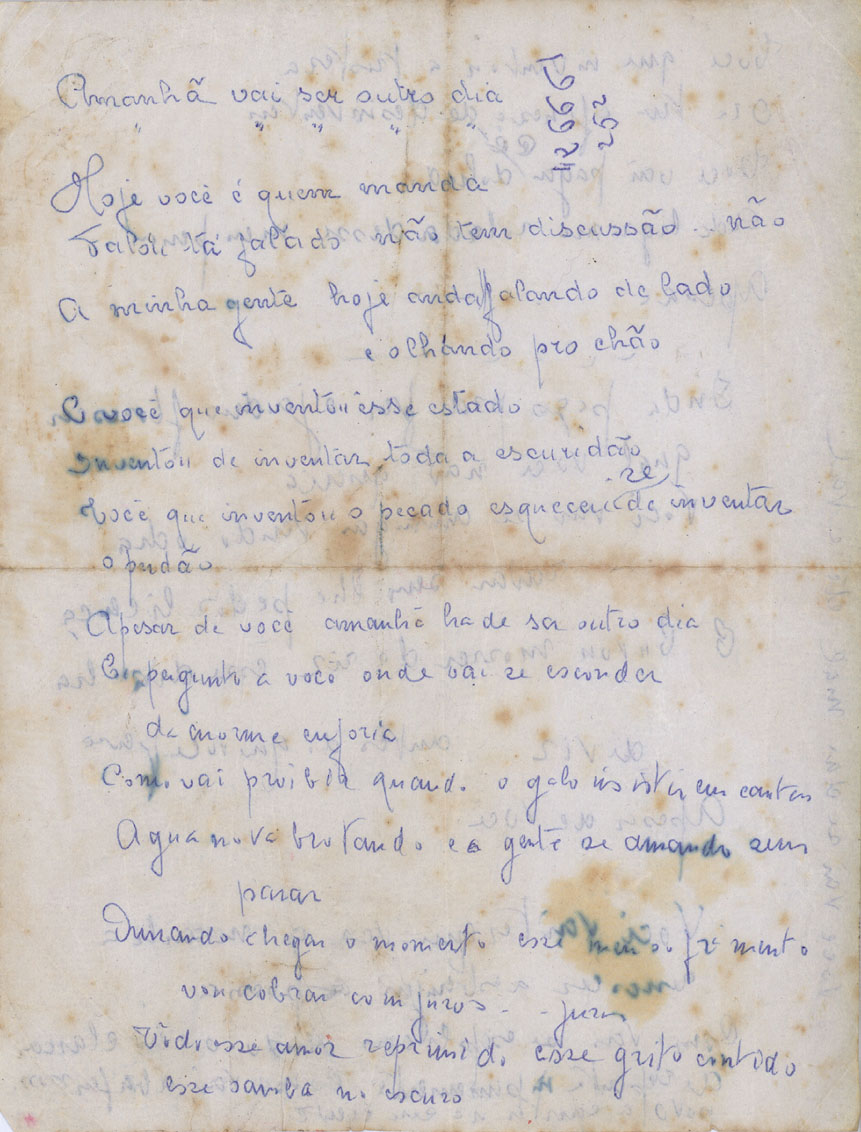 Amanhã vai ser outro dia
" " " " "
Hoje você é quem manda
Falou tá falado não tem discussão. não
A minha gente hoje anda falando de lado
e olhando pro chão
E você que inventou esse estado
Inventou de inventar toda a escuridão
Você que inventou o pecado esqueceu-se de inventar
o perdão
Apesar de você amanhã ha de ser outro dia
E pergunto a você onde vai se esconder
da enorme euforia
Como vai proibir quando o galo insistir em cantar
Agua nova brotando e a gente se amando sem
parar
Quando chegar o momento esse meu sofrimento
vou cobrar com juros - - juros
Todo esse amor reprimido esse grito contido
esse samba no escuro
252